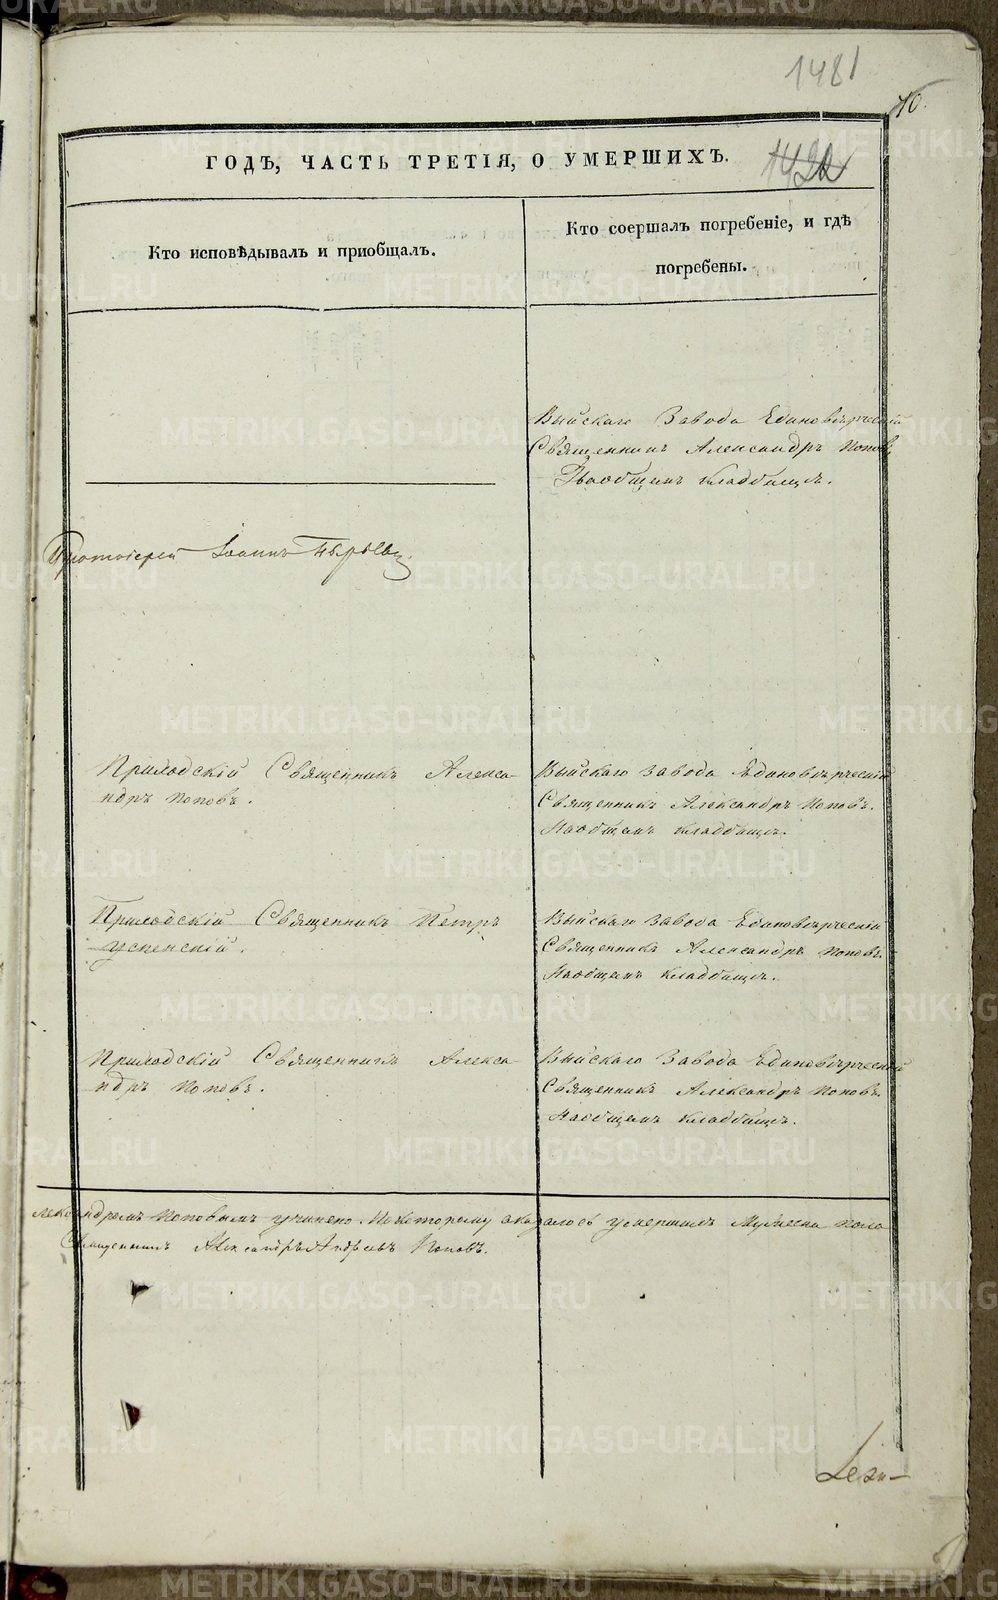 1481
70.
ГОДѢ, ЧАСТЬ ТРЕТІЯ, О УМЕРШИХЪ.
1422
Кто исповѣдывалъ и пріобщалъ.
Кто соершалъ погребеніе, и гдѣ
погребены.
Выйскаго Завода Единовѣрческій
Священникъ Александръ Поповъ
На общемъ кладбищѣ.
Протоіерей Іоаннъ
Приходскій Священникъ Алекса-
ндръ Поповъ.
Выйскаго Завода Единовѣрческій
Священникъ Александръ Поповъ.
На общемъ кладбищѣ.
Приходскій Священникъ Петръ
Успенскій.
Выйскаго Завода Единовѣрческій
Священникъ Александръ Поповъ.
На общемъ кладбищѣ.
Приходскій Священникъ Алекса-
ндръ Поповъ.
Выйскаго Завода Единовѣрческій
Священникъ Александръ Поповъ.
На общемъ кладбищѣ.
лександромъ Поповымъ учинено по которому оказалось умершихъ Мужеска пола
Священникъ Александръ Андреевъ Поповъ.
METRIKI.GASO-URAL.RU